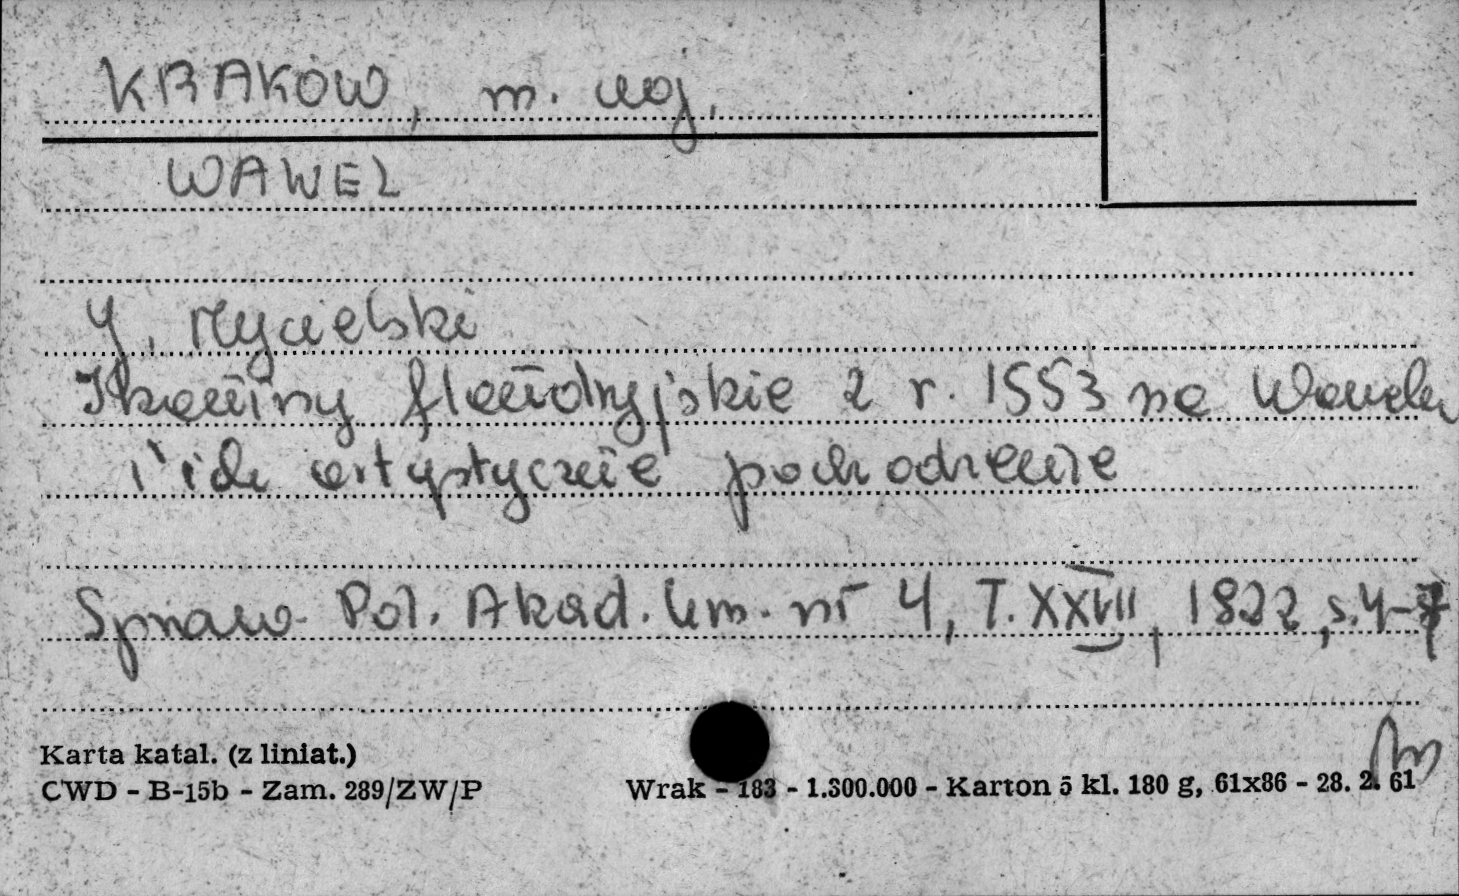 KRAKÓW, m. woj.
WAWEL
J. Mycielski
Tkaniny flandryjskie z r. 1553 na Wawelu
i ich artystycznie pochodzenie
Sprawo. Pol. Akad. Um. nr 4, T. XXVII, 1922, s. 4-7
Karta katal. (z liniat.)
CWD - B-15b - Zam. 289/ZW/P
Wrak - 183 - 1.300.000 - Karton 5 kl. 180 g, 61x86 - 28. 2. 61